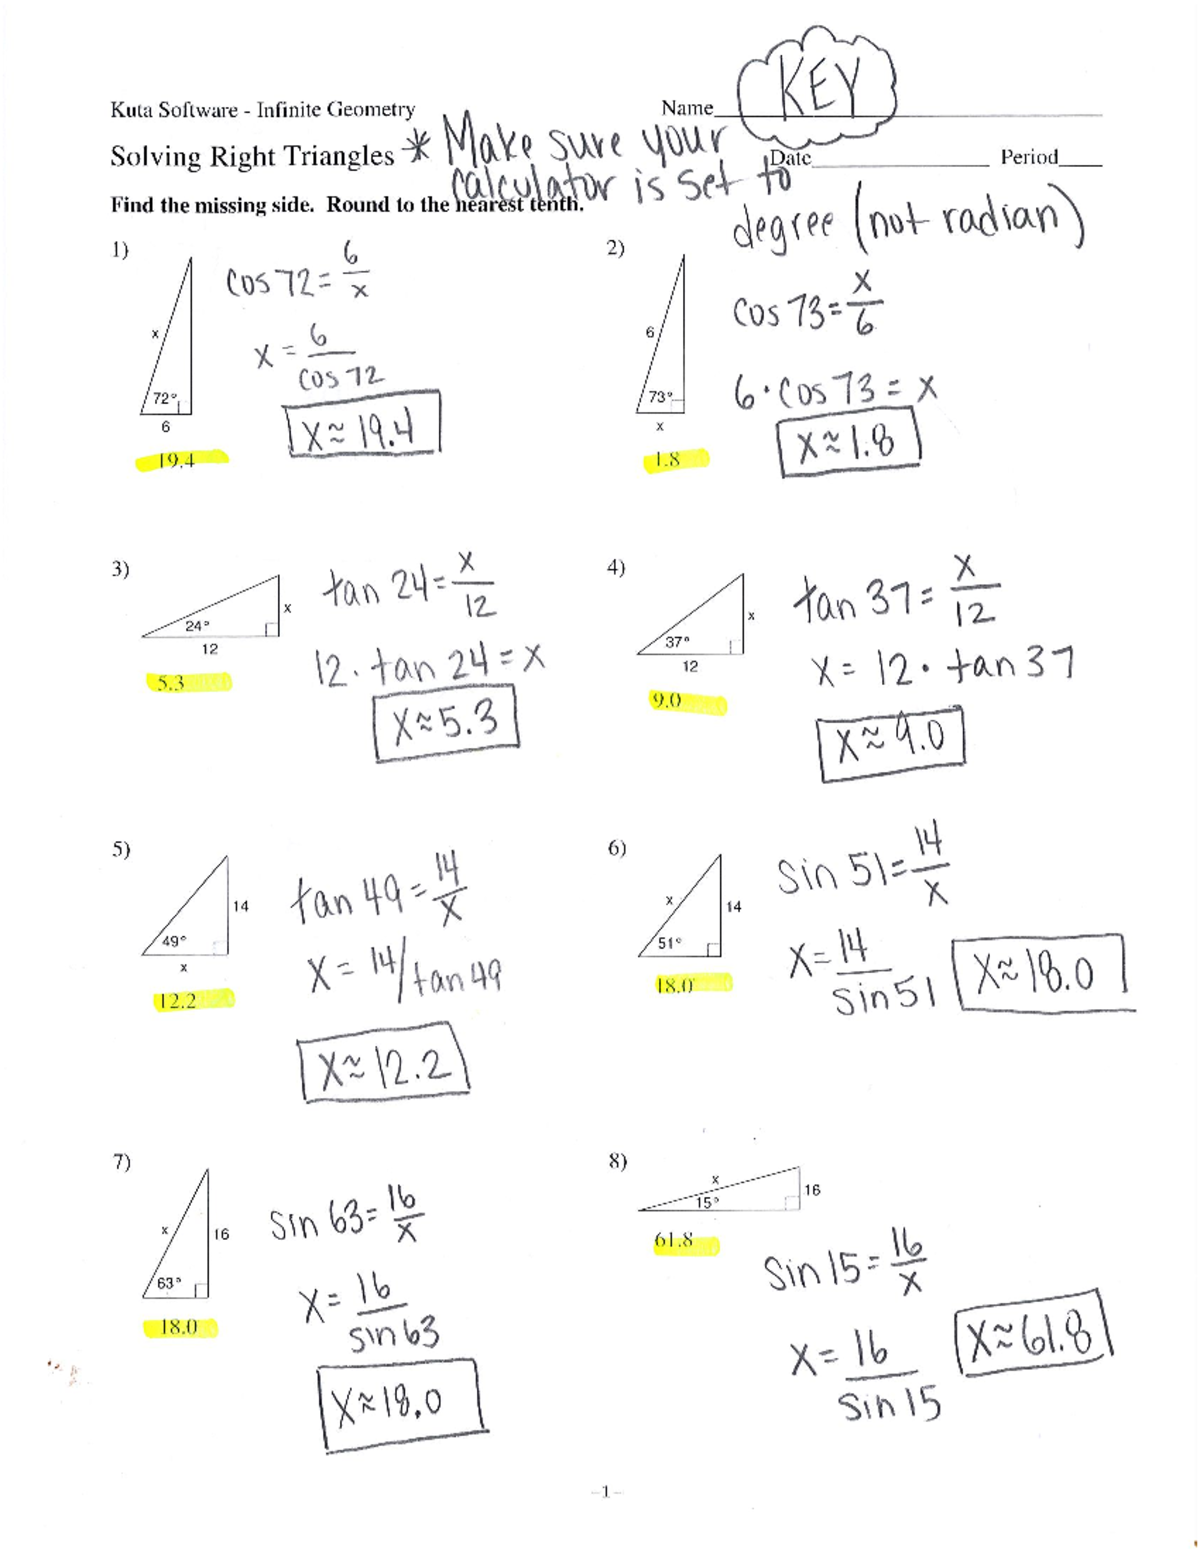 Kuta Software - Infinite Geometry
Name KEY
Solving Right Triangles * Make sure your calculator is set to degree (not radian)
Date Period
Find the missing side. Round to the nearest tenth.
1)
x
72°
6
19.4
cos 72 = 6/x
x = 6/cos 72
x ≈ 19.4
2)
6
73°
x
1.8
cos 73 = x/6
6 · cos 73 = x
x ≈ 1.8
3)
x
24°
12
5.3
tan 24 = x/12
12 · tan 24 = x
x ≈ 5.3
4)
x
37°
12
9.0
tan 37 = x/12
x = 12 · tan 37
x ≈ 9.0
5)
14
49°
x
12.2
tan 49 = 14/x
x = 14/tan 49
x ≈ 12.2
6)
x
14
51°
18.0
sin 51 = 14/x
x = 14/sin 51
x ≈ 18.0
7)
x
16
63°
18.0
sin 63 = 16/x
x = 16/sin 63
x ≈ 18.0
8)
x
16
15°
61.8
sin 15 = 16/x
x = 16/sin 15
x ≈ 61.8
-1-